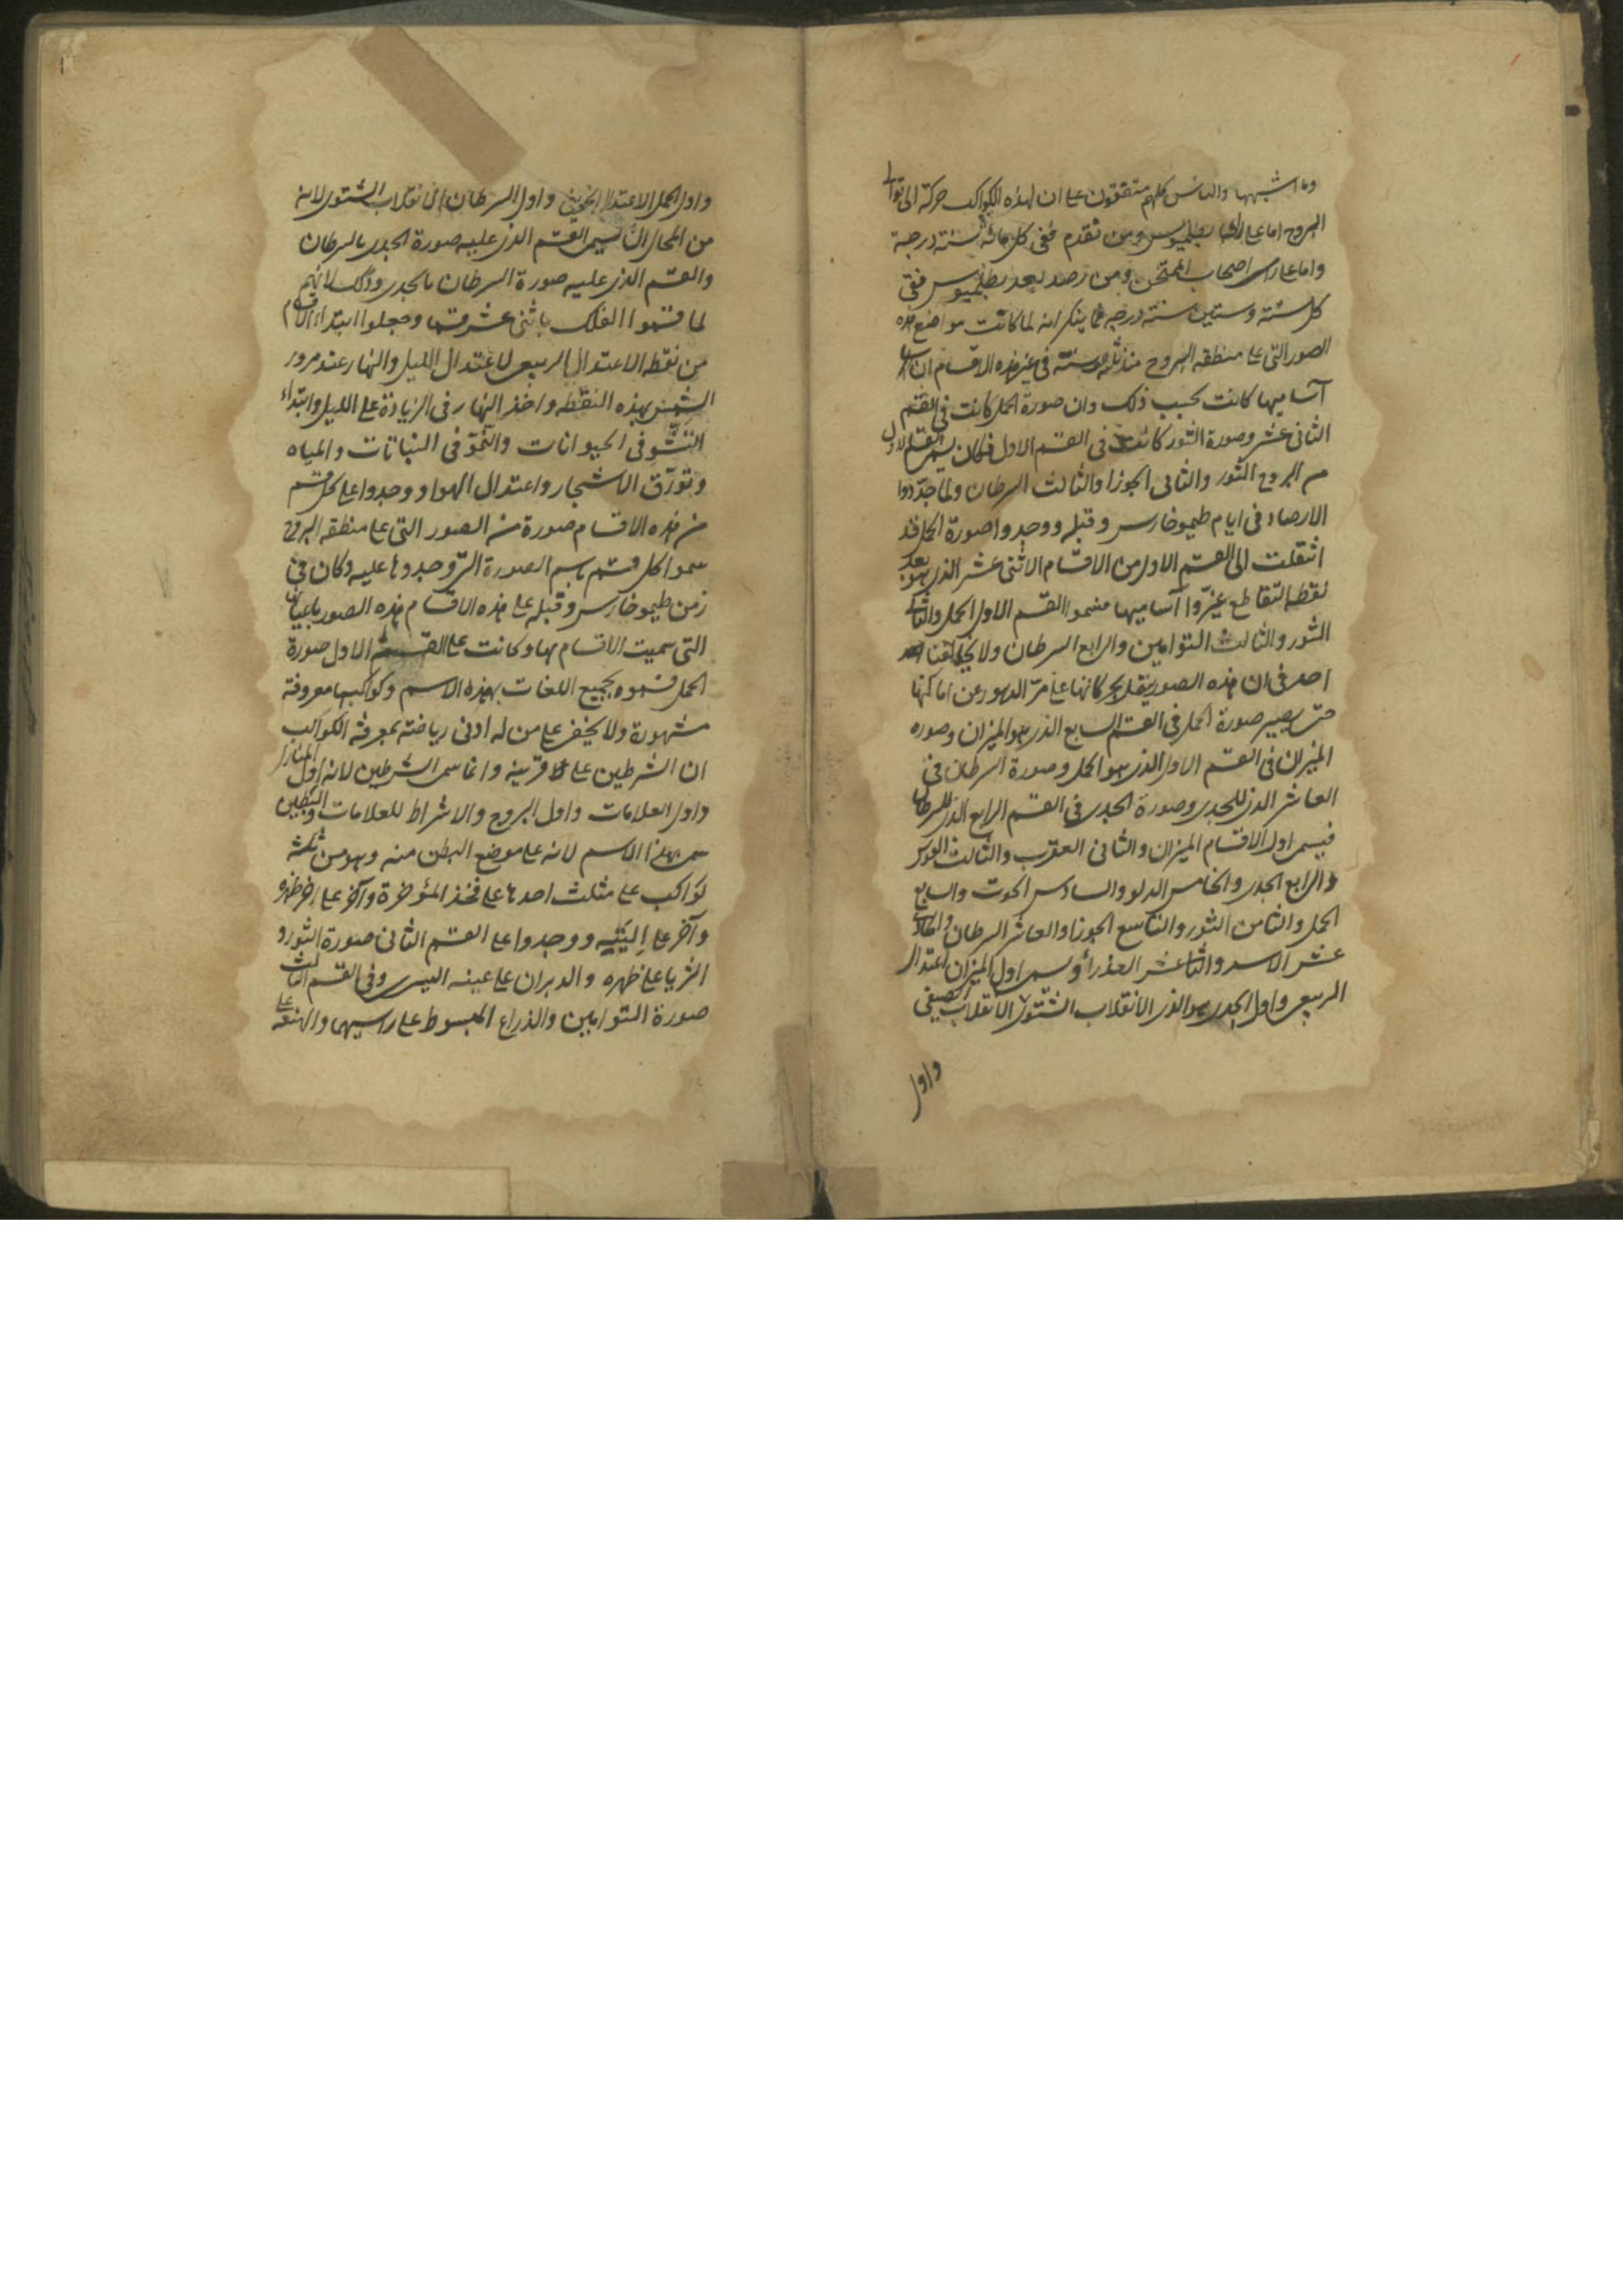 وما اشبهها والناس كلهم متفقون على ان لهذه الكواكب حركة الى توالى
البروج اما على راى بطلميوس ومن تقدم ففى كل مائة سنة درجة
واما على راى اصحاب الممتحن ومن رصد بعد بطلميوس ففى
كل ستة وستين سنة درجة فما ينكر انه لما كانت مواضع هذه
الصور التى على منطقه البروج منذ سنة فى غير هذه الاقسام ان
آساميها كانت بحسب ذلك وان صورة الحمل كانت فى القسم
الثانى عشر وصورة الثور كانت فى القسم الاول فكان يسمى القسم الاول
من البروج الثور والثانى الجوزا والثالث السرطان ولما جددوا
الارصاد فى ايام طيموخارس وقبله ووجدوا صورة الحمل قد
انتقلت الى القسم الاول من الاقسام الاثنى عشر الذى هو بعد
نقطه التقاطع غيّروا آساميها فسموا القسم الاول الحمل والثانى
الثور والثالث التوامين والرابع السرطان ولا يخالفنا
احد فى ان هذه الصور ينقل بحركاتها على مرّ الدهور عن اماكنها
حتى يصير صورة الحمل فى القسم السابع الذى هو الميزان وصوره
الميزان فى القسم الاول الذى هو الحمل وصورة السرطان فى
العاشر الذى للجدى وصورة الجدى فى القسم الرابع الذى للسرطان
فيسمى اول الاقسام الميزان والثانى العقرب والثالث القوس
والرابع الجدى والخامس الدلو والسادس الحوت والسابع
الحمل والثامن الثور والتاسع الجوزا والعاشر السرطان والحادى
عشر الاسد والثانى عشر العذراء ويسمى اول الميزان اعتدال
الربيعى واول الجدى هو الذى الانقلاب الشتوى الانقلاب الصيفى
واول
واول الحمل الاعتدال الخريفى واول السرطان الانقلاب الشتوى لانه
من المحال ان يسمى القسم الذى عليه صورة الجدى بالسرطان
والقسم الذى عليه صورة السرطان بالجدى وذلك لانهم
لما قسموا الفلك باثنى عشر قسما وجعلوا ابتداء الاقسام
من نقطه الاعتدال الربيعى لاعتدال الليل والنهار عند مرور
الشمس بهذه النقطه واخذ النهار فى الزيادة على الليل وابتداء
النشو فى الحيوانات والنموّ فى النباتات والمياه
وتورّق الاشجار واعتدال الهوا ووجدوا على كل قسم
من هذه الاقسام صورة من الصور التى على منطقه البروج
سموا كل قسم باسم الصورة التى وجدوها عليه وكان فى
زمن طيموخارس وقبله على هذه الاقسام هذه الصور باعيانها
التى سميت الاقسام بها وكانت على القسم الاول صورة
الحمل فسموه بجميع اللغات بهذه الاسم وكواكبها معروفة
مشهورة ولا يخفى على من له ادنى رياضة بمعرفة الكواكب
ان الشرطين على قرنيه وانما سمى الشرطين لانه اول المنازل
واول العلامات واول البروج والاشراط للعلامات والبطين
سمى بهذا الاسم لانه على موضع البطن منه وهو من ثلثة
كواكب على مثلث احدها على فخذ المؤخرة وآخر على
وآخر على اليَتيه ووجدوا على القسم الثانى صورة الثور و
الثريا على ظهره والدبران على عينه اليسرى وفى القسم الثالث
صورة التوامين والذراع المبسوط على راسيهما والهنعه على